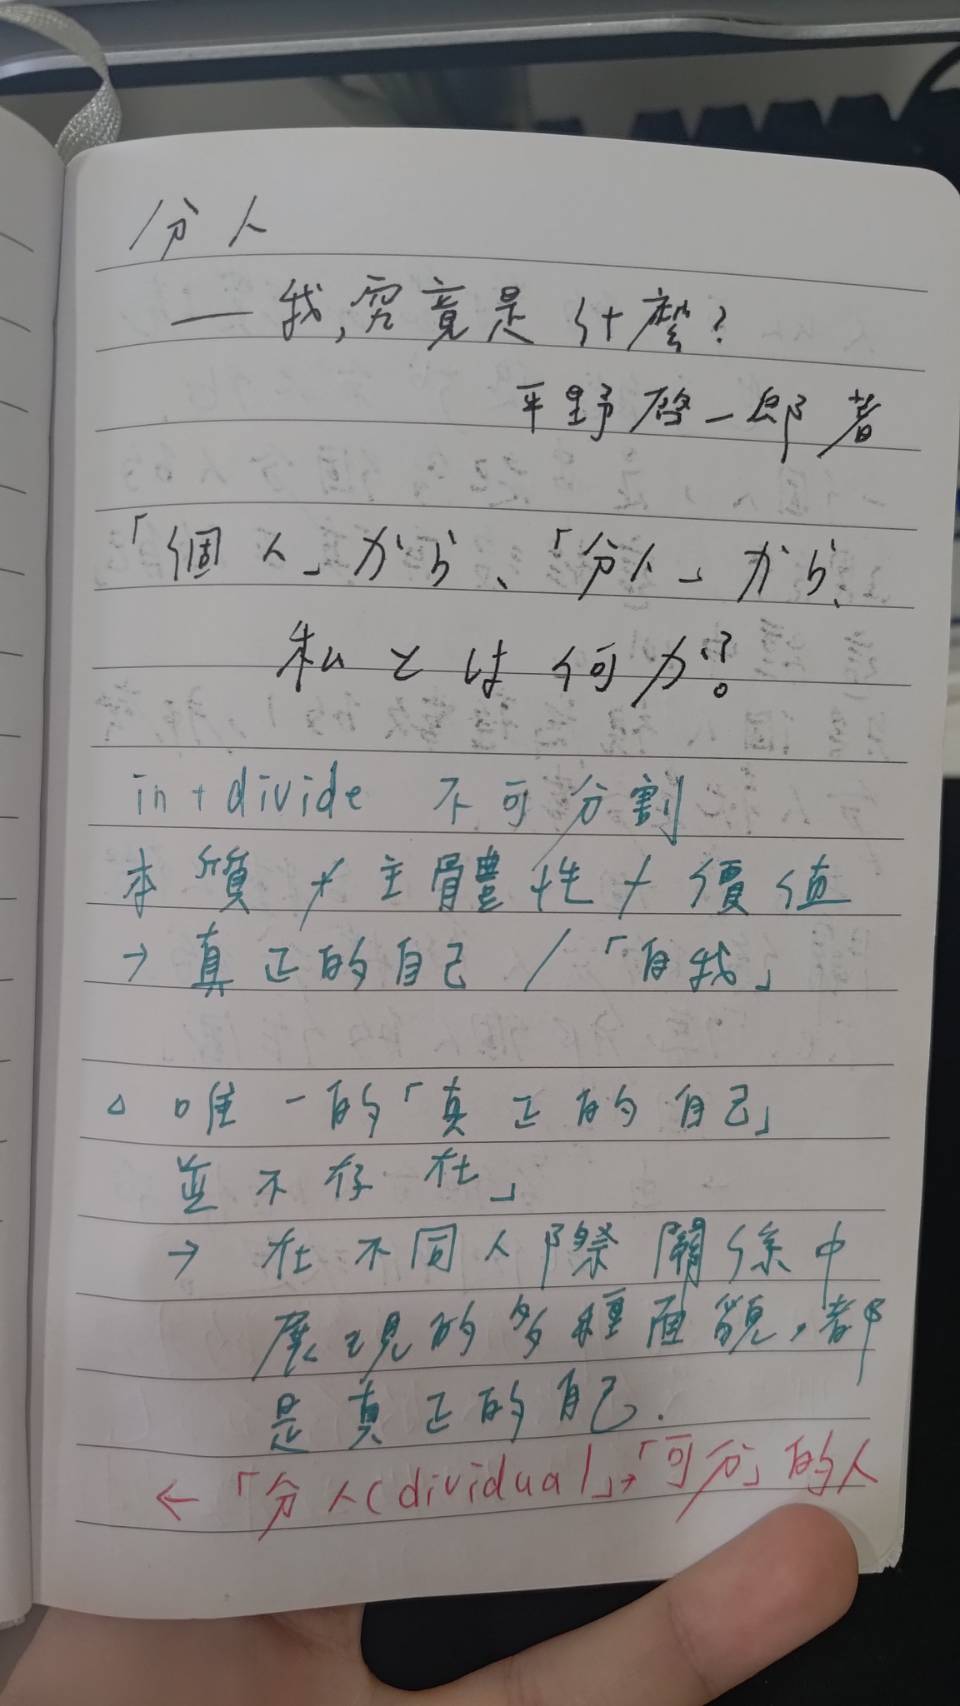 分人
——我,究竟是什麼?
平野啓一郎 著
「個人」から、「分人」から、
私とは何か?。
in + divide 不可分割
本質 / 主體性 / 價值
→ 真正的自己 / 「自我」
△ 唯一的「真正的自己」
並不存在」
→ 在不同人際關係中
展現的多種面貌,都
是真正的自己.
← 「分人(dividual」→「可分」的人